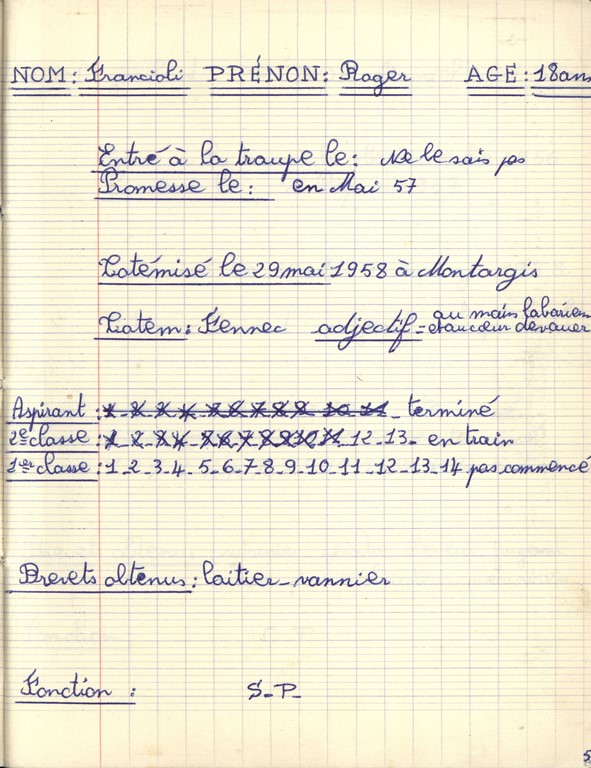 NOM: Francioli PRÉNON: Roger AGE: 18ans
Entré à la troupe le: Ne le sais pas
Promesse le: en Mai 57
Totémisé le 29 mai 1958 à Montargis
Totem: Fennec adjectif = au main laborieuse
et au coeur dévoué
Aspirant: 1 2 3 4 5 6 7 8 9 10 11 _ terminé
2e classe: 1 2 3 4 5 6 7 8 9 10 11 12_13_ en train
1er classe: 1_2_3_4_5_6_7_8_9_10_11_12_13_14 pas commencé
Brevets obtenus: laitier_vannier
Fonction: S_P_
5